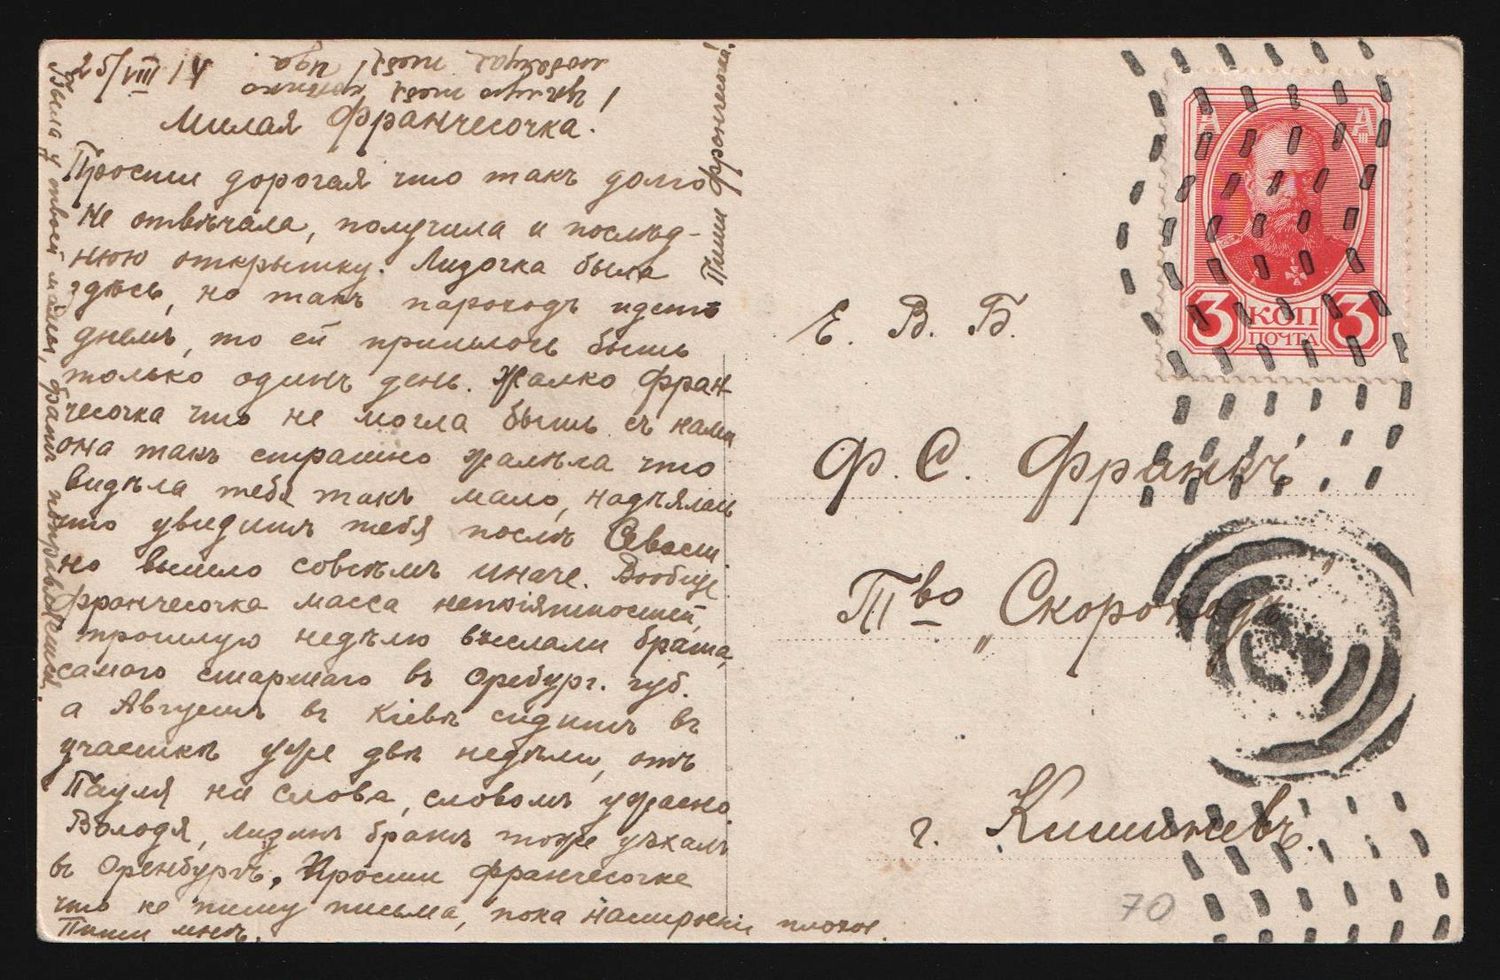 25/VIII 14
Милая Франчесочка.
Прости дорогая что такъ долго
не отвѣчала, получила и послѣд-
нюю открытку. Лидочка была
здѣсь, но такъ пароходъ идетъ
днемъ, то ей пришлось быть
только одинъ день. Жалко Фран-
чесочка что не могла быть съ нами
она такъ страшно жалѣла что
видѣла тебя такъ мало, надѣялась
что увидитъ тебя послѣ Севаст.
но вышло совсѣмъ иначе. Вообще
Франчесочка масса непріятностей,
прошлую недѣлю выслали брата,
самаго старшаго въ Оренбург. губ.
а Августъ въ Кіевѣ сидитъ въ
участкѣ уже двѣ недѣли, отъ
Пауля ни слова, словомъ ужасно.
Володя, Лидинъ братъ тоже уѣхалъ
въ Оренбургъ. Прости Франчесочке
что не пишу письма, пока настроеніе плохое.
Пиши мнѣ.
Была у твоей мамы, братъ поправ
Пиши Франческа.
Е. В. Б.
Ф. С. Франкъ
Тво „Скороходъ"
г. Кишиневъ.
3 КОП 3
ПОЧТА
70